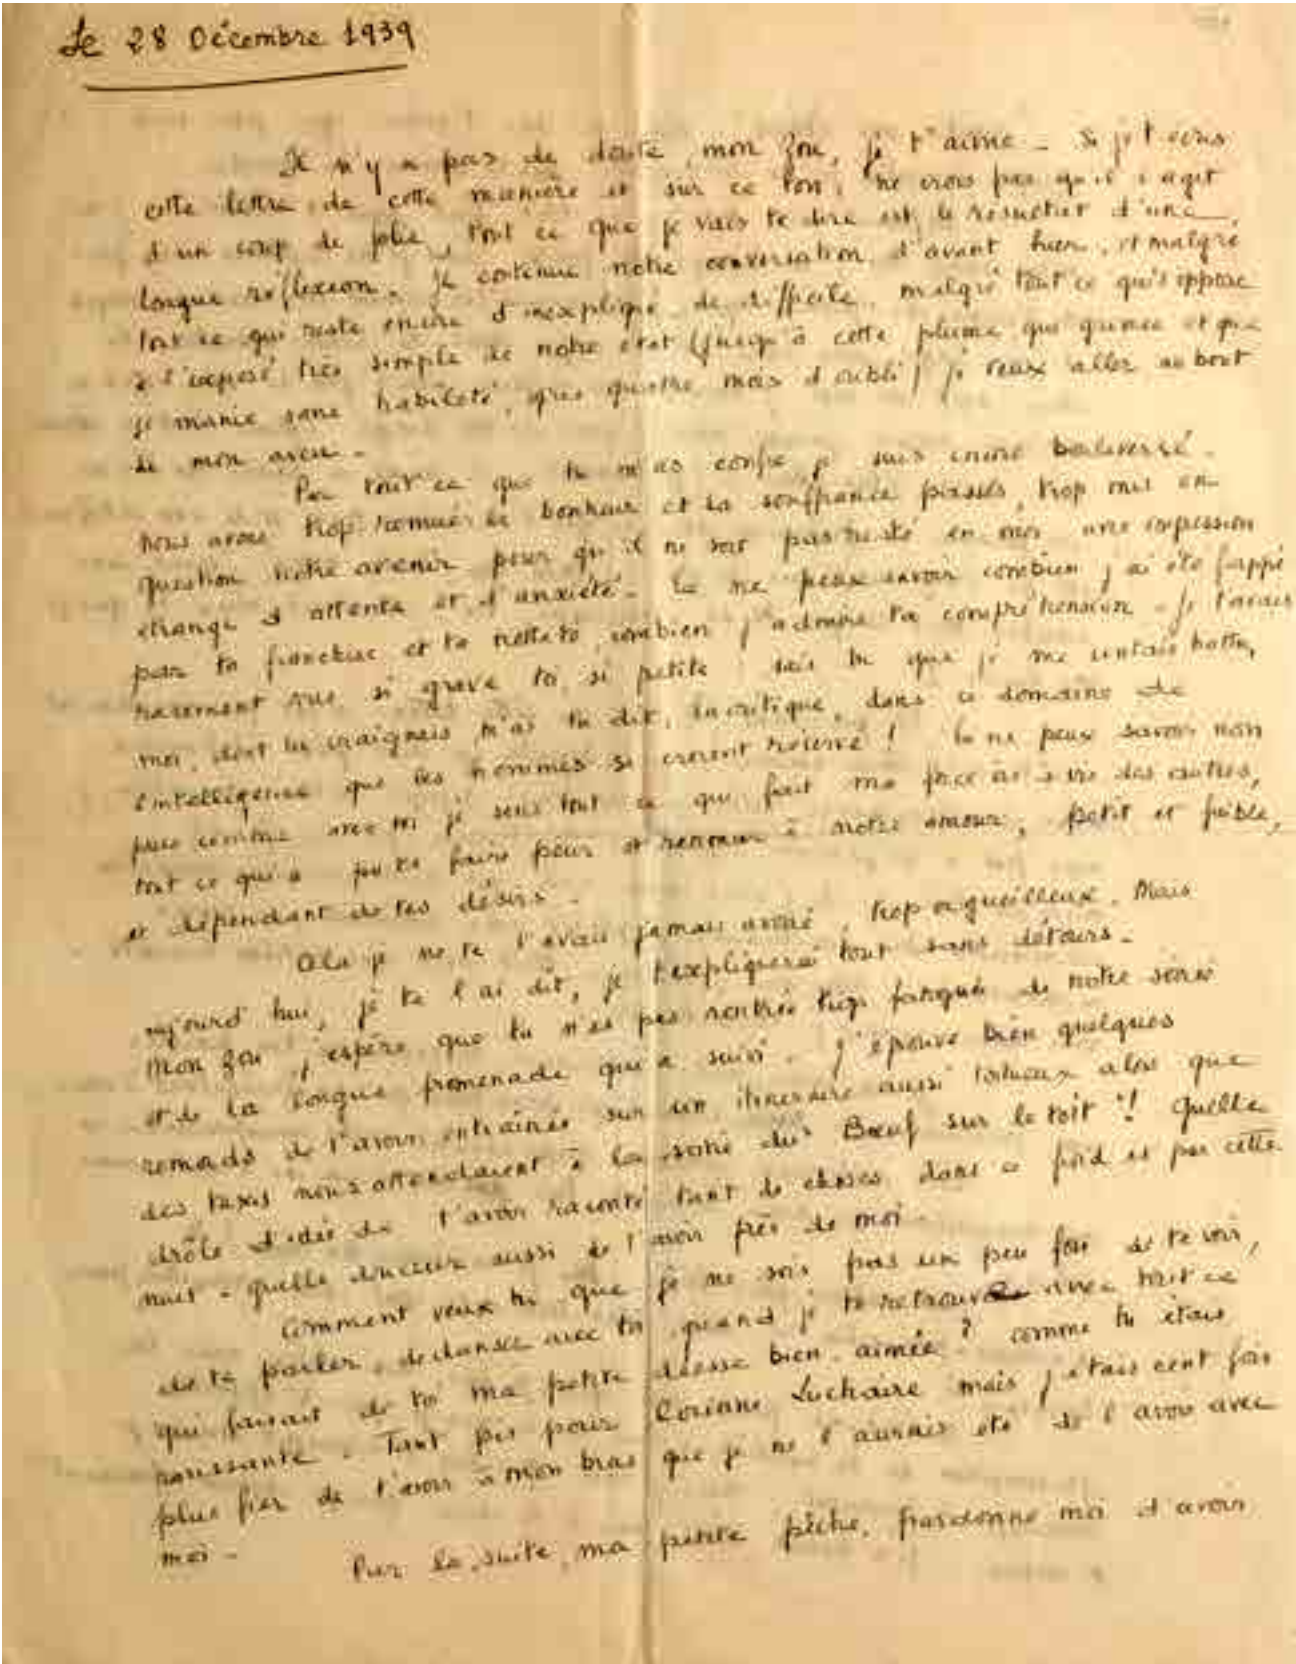 Le 28 Décembre 1939
Il n'y a pas de doute, mon Zou, je t'aime _ Si je t'écris
cette lettre de cette manière et sur ce ton, ne crois pas qu'il s'agit
d'un coup de folie, tout ce que je vais te dire est le résultat d'une
longue réflexion. Je continue notre conversation d'avant hier, et malgré
tout ce qui reste encore d'inexpliqué, de difficile, malgré tout ce qui s'oppose
à l'exposé très simple de notre état (jusqu'à cette plume qui grince et que
je manie sans habileté, après quatre mois d'oubli) je veux aller au bout
de mon aveu _
Par tout ce que tu m'as confié je suis encore bouleversé _
Nous avons trop remué le bonheur et la souffrance passés, trop mis en
question notre avenir pour qu'il ne soit pas resté en moi une impression
étrange d'attente et d'anxiété _ Tu ne peux savoir combien j'ai été frappé
par ta franchise et ta netteté, combien j'admire ta compréhension _ Je t'avais
rarement vue si grave toi, si petite sais tu que je me sentais
moi, dont tu craignais, m'as tu dit, la critique, dans ce domaine de
l'intelligence que les hommes se croient réservé ! Tu ne peux savoir non
plus comme avec toi je sens tout ce qui fait ma force vis à vis des autres,
tout ce qui a pu te faire peur et renoncer à notre amour, petit et faible,
et dépendant de tes désirs _
Cela je ne te l'avais jamais avoué, trop orgueilleux. Mais
aujourd'hui, je te l'ai dit, je t'expliquerai tout sans détours _
Mon Zou j'espère que tu n'es pas rentrée trop fatiguée de notre soirée
et de la longue promenade qui a suivi _ J'éprouve bien quelques
remords de t'avoir entraînée sur un itinéraire aussi tortueux alors que
des taxis nous attendaient à la sortie du "Bœuf sur le toit" ! Quelle
drôle d'idée de t'avoir raconté tant de choses dans ce froid et par cette
nuit _ quelle douceur aussi de t'avoir près de moi _
Comment veux tu que je ne sois pas un peu fou de te voir,
de te parler, de danser avec toi quand je te retrouve avec tout ce
qui faisait de toi ma petite déesse bien-aimée ? comme tu étais
ravissante _ Tant pis pour Corinne Luchaire mais j'étais cent fois
plus fier de t'avoir à mon bras que je ne l'aurais été de l'avoir avec
moi _
Pour la suite, ma petite pêche, pardonne moi d'avoir